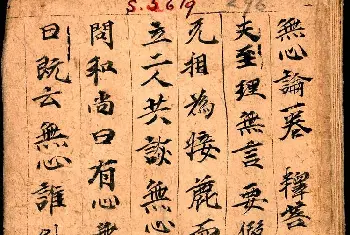 S.5619
無心論一卷 釋菩
夫至理無言要假
无相為接麁而
立二人共談無心
問和尚曰有心無
曰既云無心誰